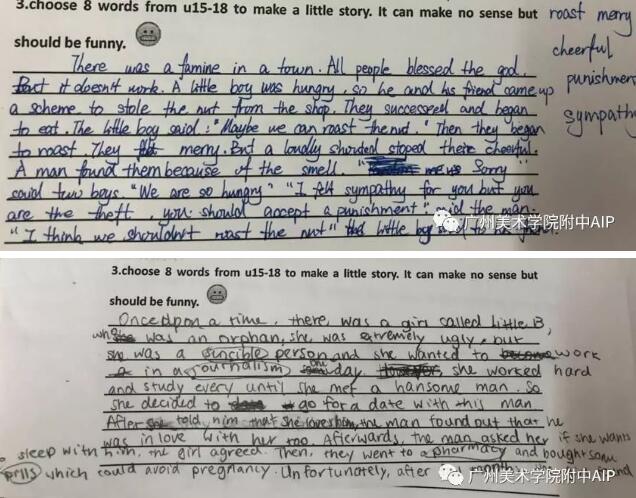 3.choose 8 words from u15-18 to make a little story. It can make no sense but
should be funny.
roast merry
cheerful
punishment
sympathy
There was a famine in a town. All people blessed the god.
But it doesn't work. A little boy was hungry, so he and his friend came up
a scheme to stole the nut from the shop. They successeed and began
to eat. The little boy said: "Maybe we can roast the nut." Then they began
to roast. They merry. But a loudly shouded stoped their cheerful.
A man found them because of the smell. " Sorry "
said two boys. "We are so hungry" "I felt sympathy for you but you
are the theft, you should accept a punishment" said the man.
"I think we shouldn't roast the nut" little boy to his
广州美术学院附中AIP
3.choose 8 words from u15-18 to make a little story. It can make no sense but
should be funny.
Once upon a time, there, was a girl called Little B,
who was an orphan, she was extremely ugly, but
she was a person and she wanted to work
in a journalism one day. she worked hard
and study every until she met a hansome man. So
she decided to go for a date with this man
After told him that she loves him, the man found out that he
was in love with her too. Afterwards, the man asked her if she wants
to sleep with him, the girl agreed. Then, they went to a pharmacy and bought some
pills which could avoid pregnancy. Unfortunately, after month
广州美术学院附中AIP